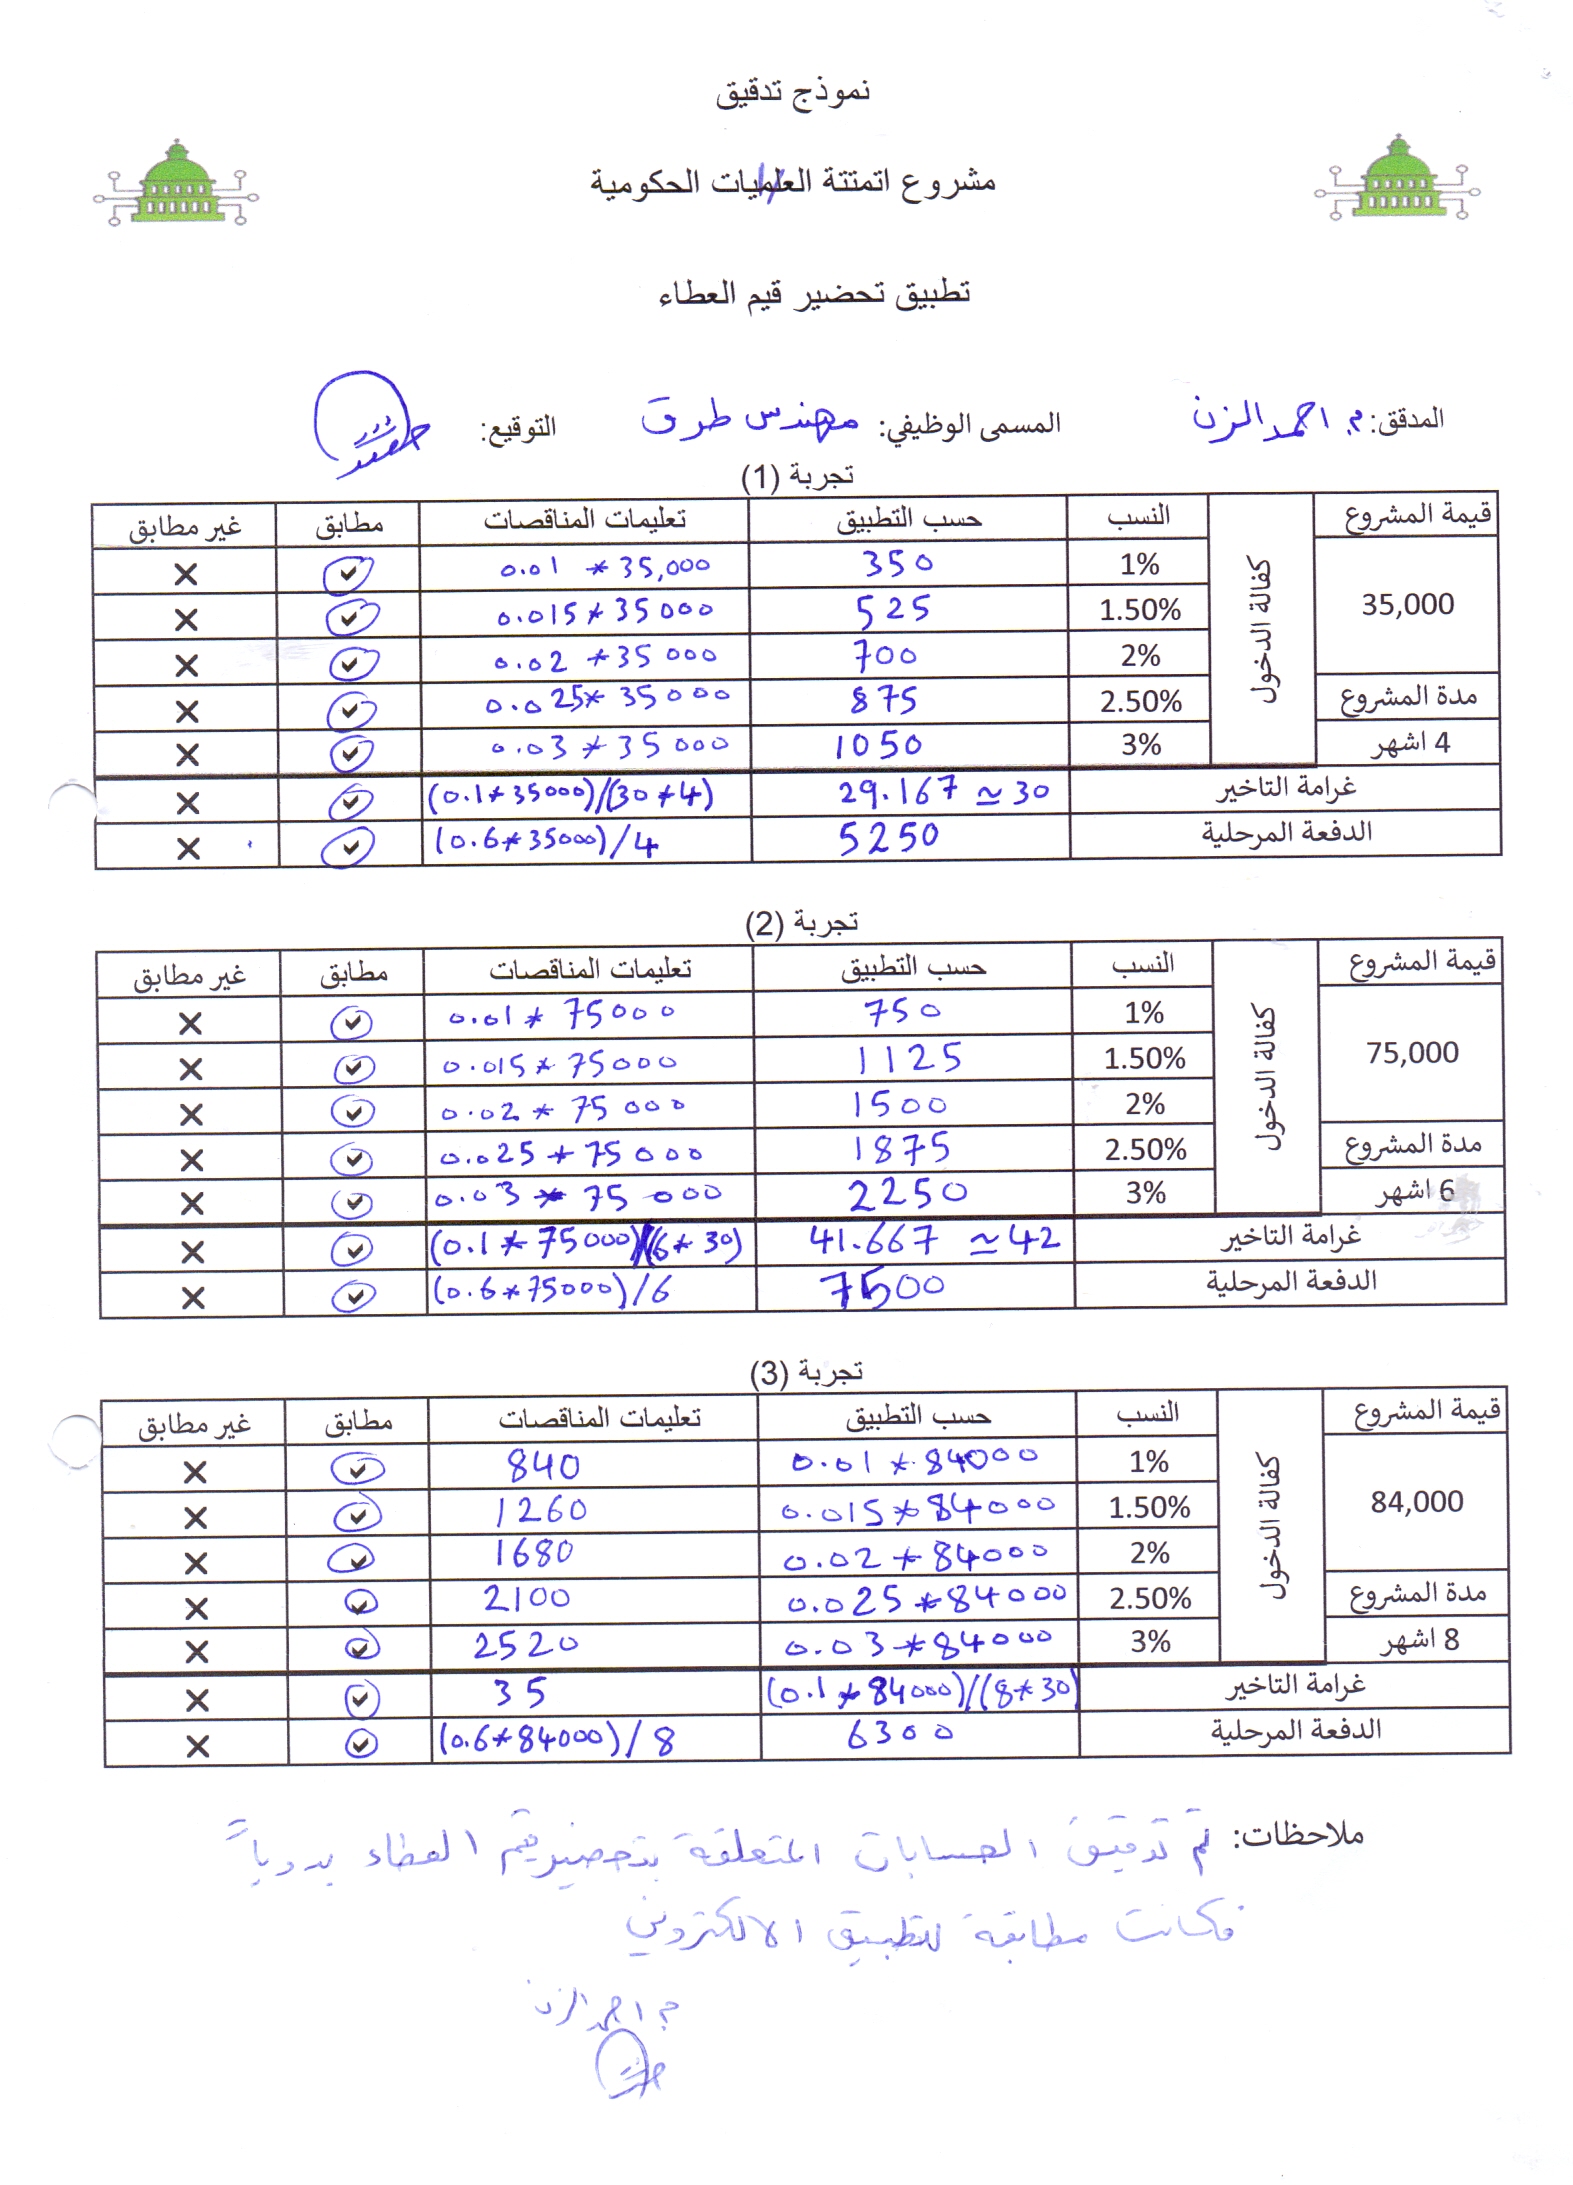 نموذج تدقيق
مشروع اتمتتة العلميات الحكومية
تطبيق تحضير قيم العطاء
المدقق: م. احمد الزن المسمى الوظيفي: مهندس طرق التوقيع:
تجربة (1)
قيمة المشروع كفالة الدخول النسب حسب التطبيق تعليمات المناقصات مطابق غير مطابق
35,000 1% 350 0.01 * 35,000 ✓ ×
1.50% 525 0.015 * 35000 ✓ ×
2% 700 0.02 * 35000 ✓ ×
مدة المشروع 2.50% 875 0.025 * 35000 ✓ ×
4 اشهر 3% 1050 0.03 * 35000 ✓ ×
غرامة التاخير 29.167 ≃ 30 (0.1 * 35000)/(30 * 4) ✓ ×
الدفعة المرحلية 5250 (0.6 * 35000)/4 ✓ ×
تجربة (2)
قيمة المشروع كفالة الدخول النسب حسب التطبيق تعليمات المناقصات مطابق غير مطابق
75,000 1% 750 0.01 * 75000 ✓ ×
1.50% 1125 0.015 * 75000 ✓ ×
2% 1500 0.02 * 75000 ✓ ×
مدة المشروع 2.50% 1875 0.025 * 75000 ✓ ×
6 اشهر 3% 2250 0.03 * 75000 ✓ ×
غرامة التاخير 41.667 ≃ 42 (0.1 * 75000)/(6 * 30) ✓ ×
الدفعة المرحلية 7500 (0.6 * 75000)/6 ✓ ×
تجربة (3)
قيمة المشروع كفالة الدخول النسب حسب التطبيق تعليمات المناقصات مطابق غير مطابق
84,000 1% 0.01 * 84000 840 ✓ ×
1.50% 0.015 * 84000 1260 ✓ ×
2% 0.02 * 84000 1680 ✓ ×
مدة المشروع 2.50% 0.025 * 84000 2100 ✓ ×
8 اشهر 3% 0.03 * 84000 2520 ✓ ×
غرامة التاخير (0.1 * 84000)/(8 * 30) 35 ✓ ×
الدفعة المرحلية 6300 (0.6 * 84000)/8 ✓ ×
ملاحظات: تم تدقيق الحسابات المتعلقة بتحضير قيم العطاء يدوياً
فكانت مطابقة للتطبيق الالكتروني
م احمد الزن